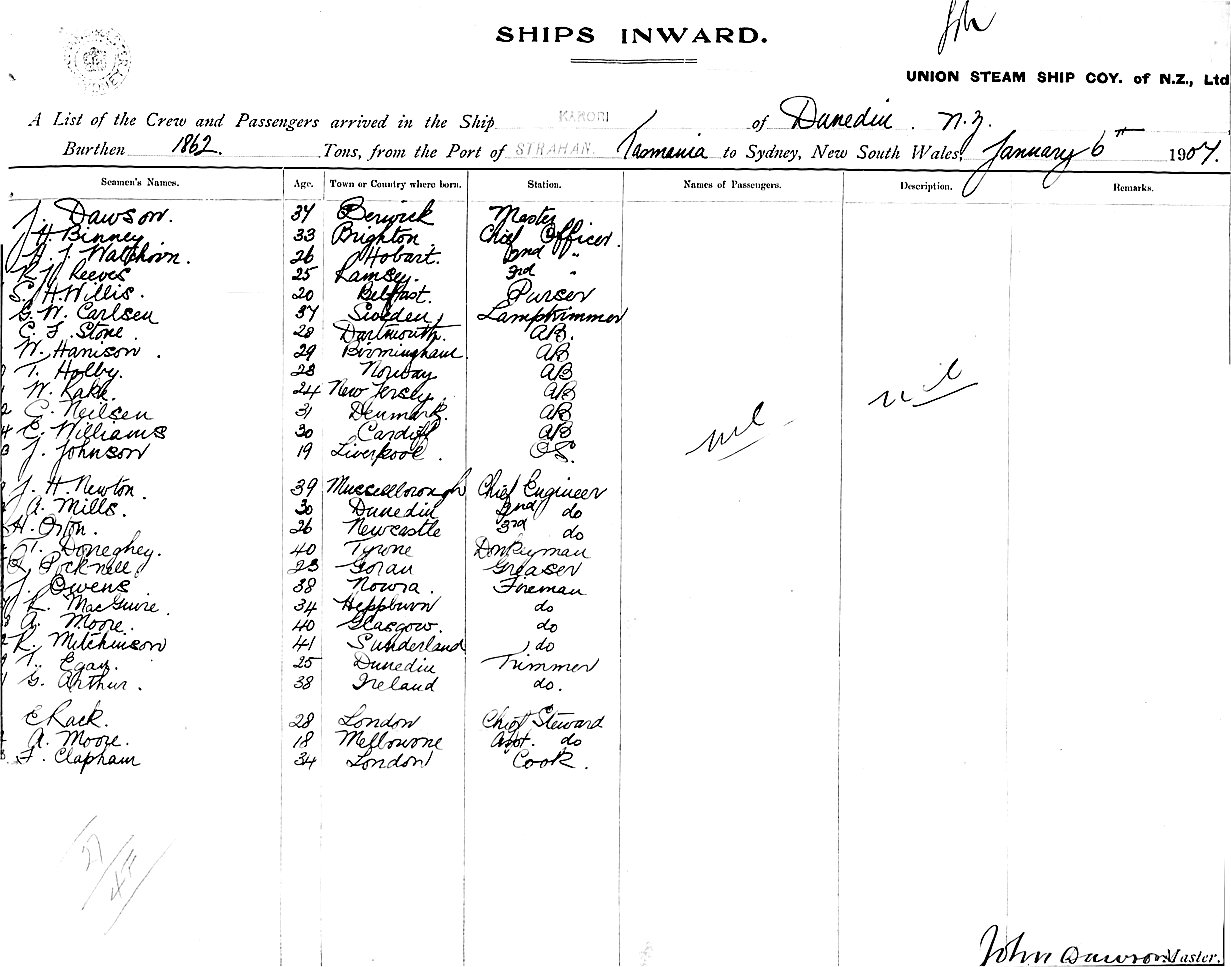 SHIPS INWARD.
UNION STEAM SHIP COY. of N.Z., Ltd
A List of the Crew and Passengers arrived in the Ship KARORI of Dunedin. N.Z.
Burthen 1862. Tons, from the Port of STRAHAN. Tasmania to Sydney, New South Wales, January 6th 1907.
Seamen's Names. Age. Town or Country where born. Station. Names of Passengers. Description. Remarks.
J. Dawson. 37 Berwick Master
J. H. Binney 33 Brighton Chief Officer.
H. J. Watchorn. 26 Hobart. 2nd "
R. J. Reeves 25 Ramsey. 3rd "
S. H. Willis. 20 Belfast. Purser
G. W. Carlsen 37 Sweden Lamptrimmer
C. F. Stone 28 Dartmouth. AB.
W. Hanison. 29 Birmingham AB
T. Holby. 28 Norway AB
W. Rake. 24 New Jersey. AB
C. Neilsen 31 Denmark. AB
E. Williams 30 Cardiff AB
J. Johnson 19 Liverpool. OS.
nil
nil
J. H. Newton. 39 Mussellborough Chief Engineer
A. Mills. 30 Dunedin 2nd do
H. 26 Newcastle 3rd do
T. Doneghey. 40 Tyrone Donkeyman
Pocknell 23 Goran Greaser
J. Owens 38 Nowra. Fireman
R. MacGuire. 34 Heppburn do
A. Moore. 40 Glasgow. do
R. Mitchinson 41 Sunderland do
T. Egan. 25 Dunedin Trimmer
G. Arthur. 38 Ireland do.
E Rack. 28 London Chief Steward
A. Moore. 18 Melbourne Asst. do
F. Clapham 34 London Cook.
27
John Dawson Master.